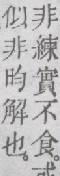 非練實不食。或
似非昀解也。